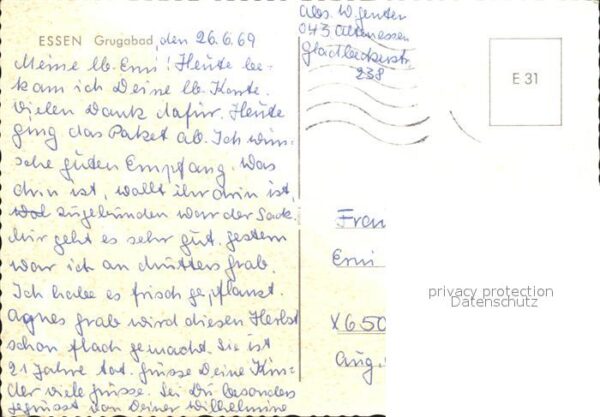 ESSEN Grugabad, den 26.6.69
Meine lb. Erni! Heute be-
kam ich Deine lb. Karte.
Vielen Dank dafür. Heute
ging das Paket ab. Ich wün-
sche guten Empfang. Was
drin ist, wollt ihr drin ist,
zugebunden war der Sack.
Mir geht es sehr gut. Gestern
war ich an Mutters Grab.
Ich habe es frisch gepflanzt.
Agnes Grab wird diesen Herbst
schon flach gemacht. Sie ist
21 Jahre tot. Grüsse Deine Kin-
der viele Grüsse. Sei Du besonders
gegrüsst von Deiner Wilhelmine
Abs. W. Genter
043 Altenessen
Gladbeckerstr.
238
E 31
Frau
Erni
X650
Aug.
privacy protection
Datenschutz